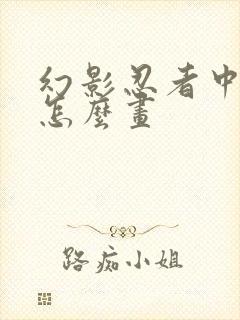 幻影忍者中
怎麼畫
路痴小姐